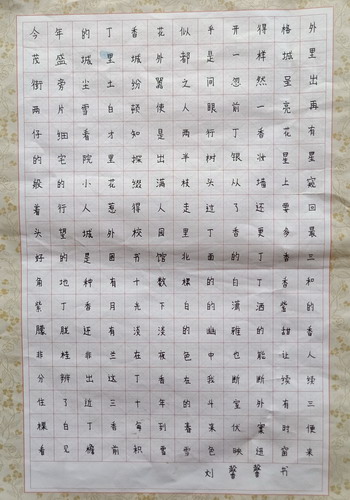 今年的丁香花似乎开得格外
茂盛城里城外都是一样城里
街旁尘土纷嚣之间忽然呈出
两片雪白顿使人眼前一亮再
仔细看才知是两行丁香花有
的宅院里探出半树银妆星星
般的小花缀满枝头从墙上窥
着行人惹得人走过了还要回
头望城外校园里丁香更多最
好的是图书馆北面的丁香三
角地种有十数棵的白丁香和
紫丁香月光下白的潇洒紫的
朦胧还有淡淡的幽雅的甜香
非桂非兰在夜色中也能让人
分辨出这丁香在我断断续续
住了近三十年的斗室外有三
棵白丁香每到春来伏案时便
看见檐前积雪雪色映进窗来
刘馨馨书